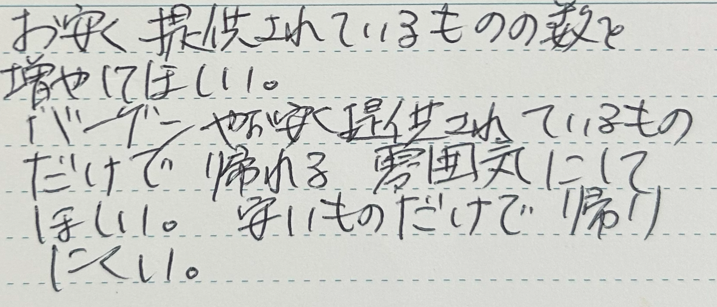 お安く提供されているものの数を
増やしてほしい。
バーゲンやお安く提供されているもの
だけで帰れる雰囲気にして
ほしい。安いものだけで帰り
にくい。